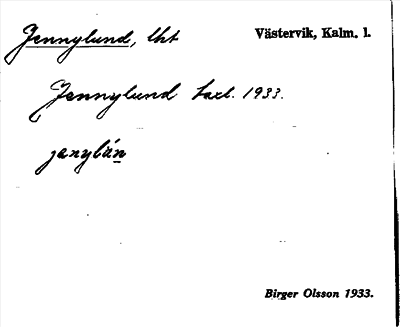 Jennylund, lht Västervik, Kalm. l.
Jennylund taxl. 1933.
jenylán
Birger Olsson 1933.